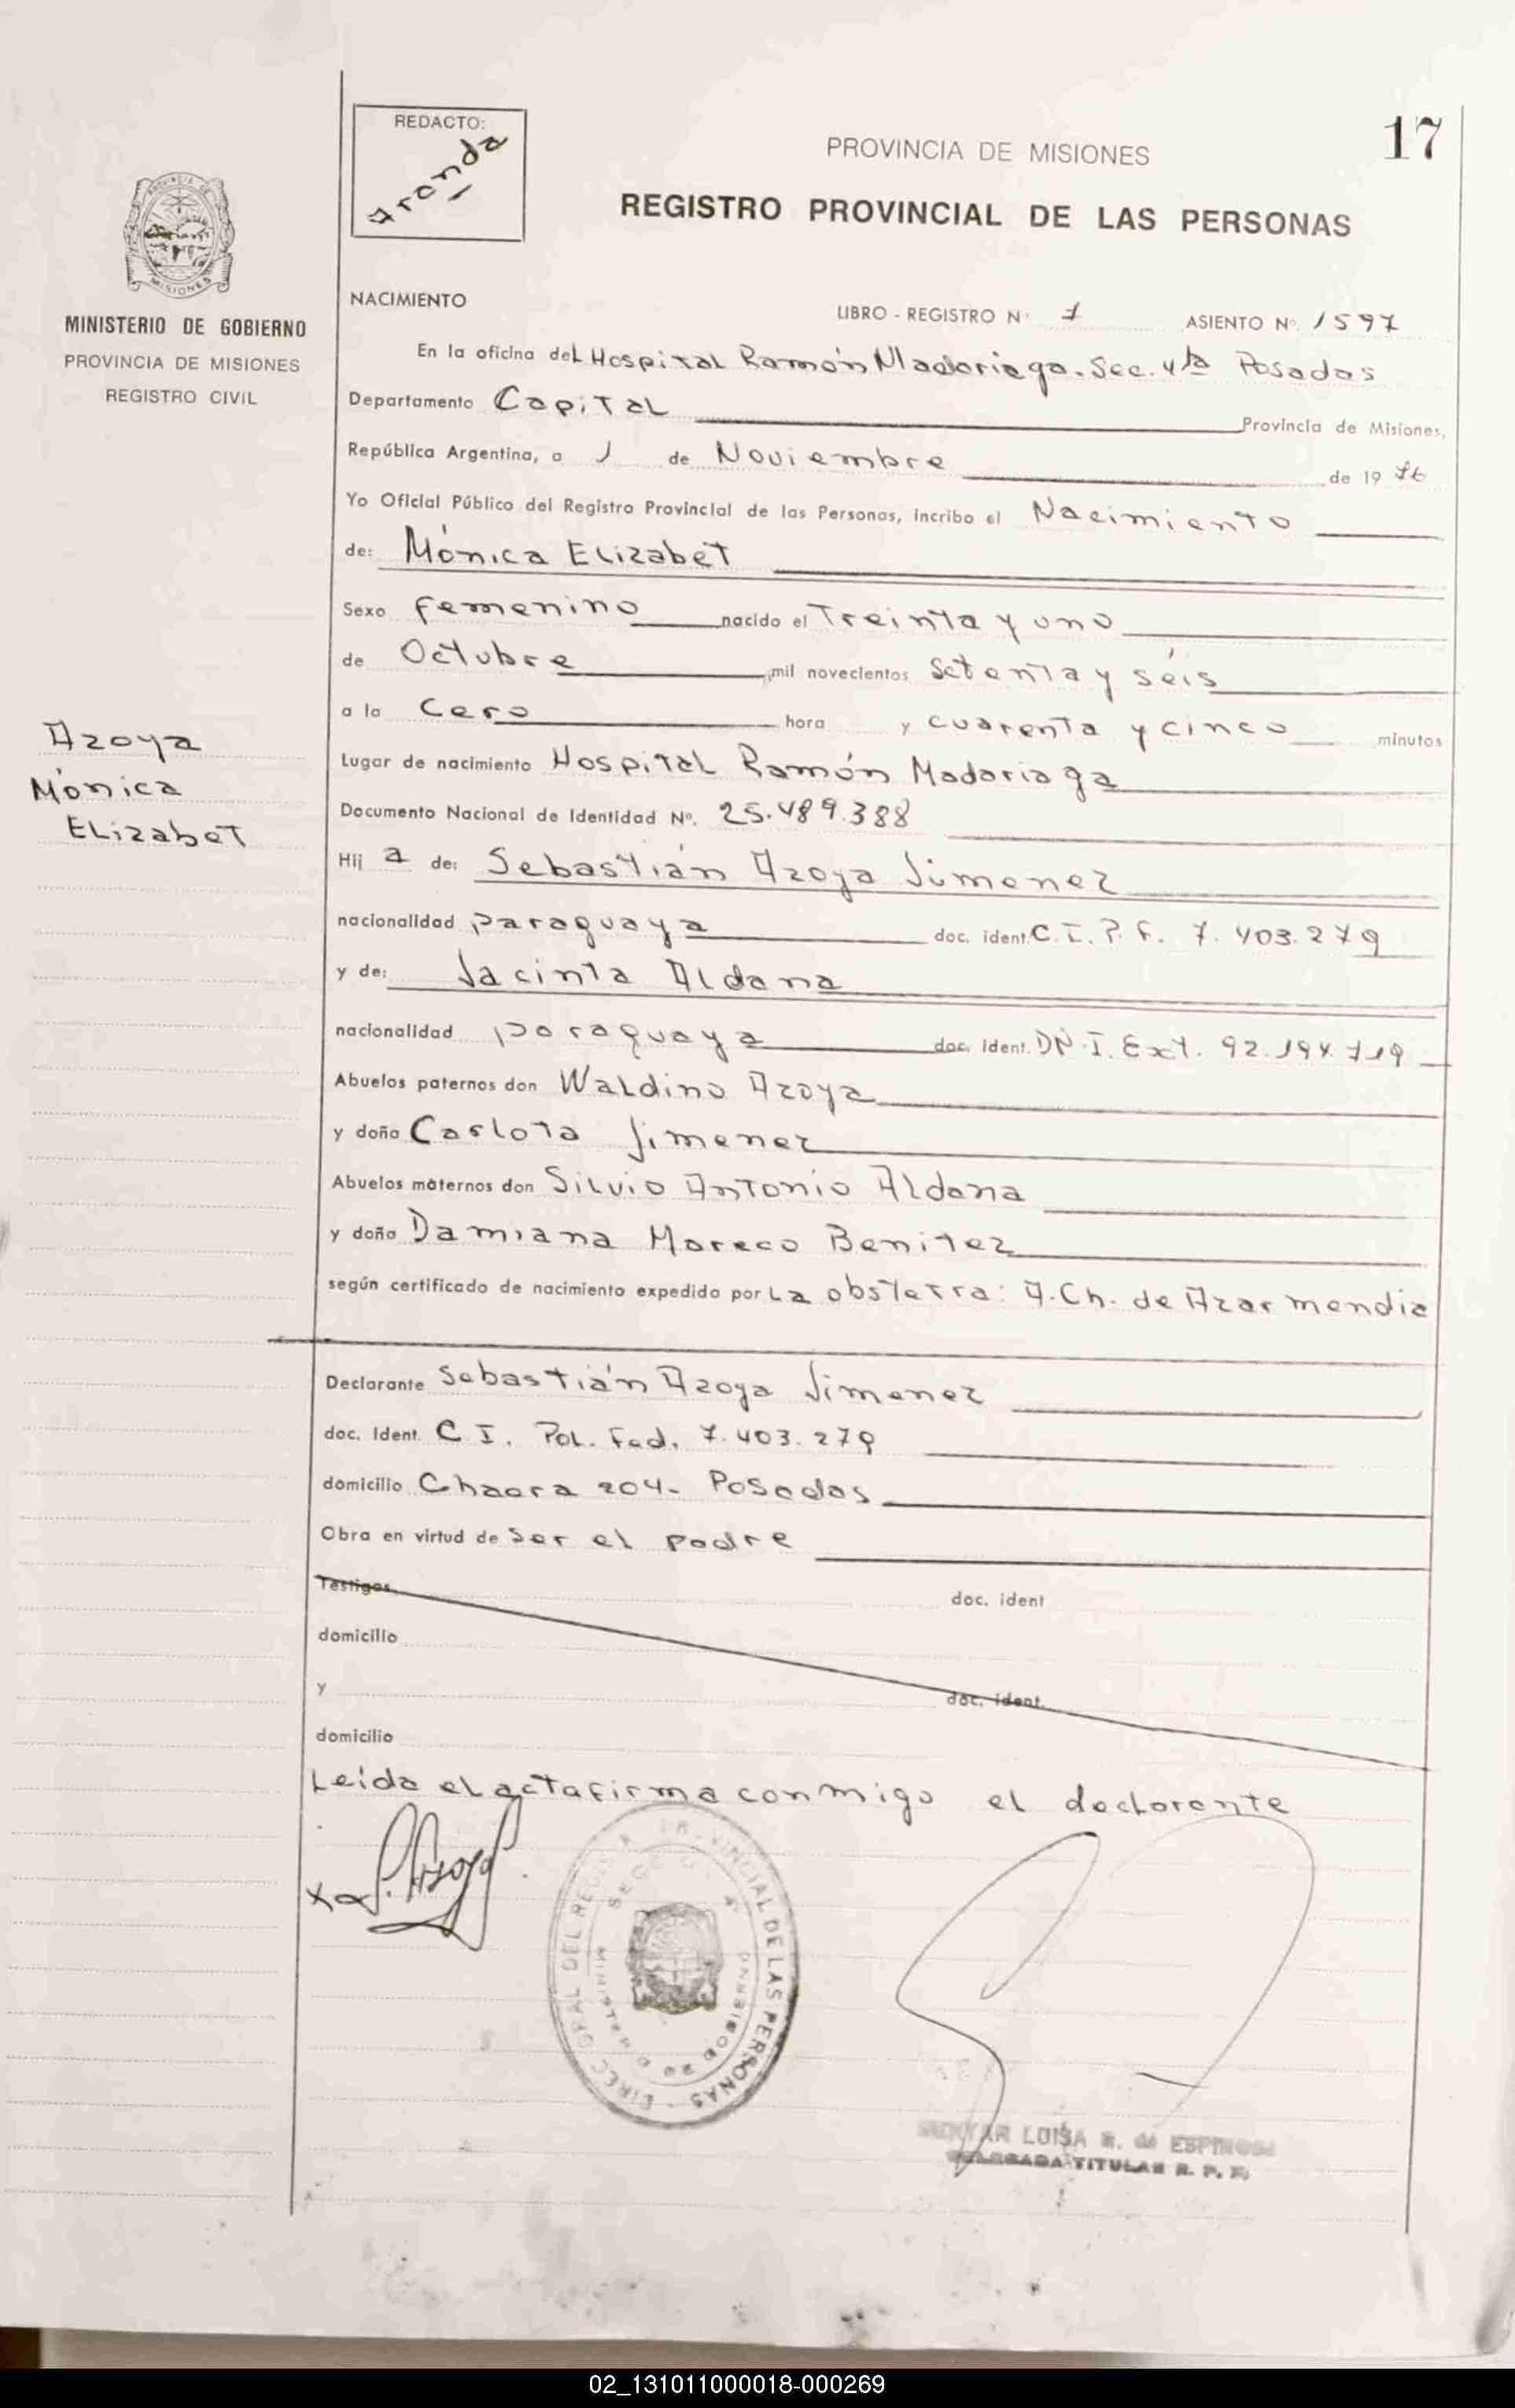 17
REDACTO:
Aranda
PROVINCIA DE MISIONES
REGISTRO PROVINCIAL DE LAS PERSONAS
MISIONES
MINISTERIO DE GOBIERNO
PROVINCIA DE MISIONES
REGISTRO CIVIL
NACIMIENTO
LIBRO - REGISTRO Nº 7 ASIENTO Nº 1597
En la oficina del Hospital Ramón Madariaga. Sec. 4ta Posadas
Departamento Capital Provincia de Misiones,
República Argentina, a 1 de Noviembre de 1976
Yo Oficial Público del Registro Provincial de las Personas, incribo el Nacimiento
de: Mónica Elizabet
Sexo femenino nacido el Treinta y uno
de Octubre mil novecientos Setenta y séis
a la Cero hora y cuarenta y cinco minutos
Azoya
Mónica
Elizabet
Lugar de nacimiento Hospital Ramón Madariaga
Documento Nacional de Identidad Nº. 25.489.388
Hij a de: Sebastián Azoya Jimenez
nacionalidad paraguaya doc. ident. C.I.P.F. 7.403.279
y de: Jacinta Aldana
nacionalidad paraguaya doc. ident. DN.I. Ext. 92.194.719
Abuelos paternos don Waldino Azoya
y doña Carlota Jimenez
Abuelos maternos don Silvio Antonio Aldana
y doña Damiana Moreco Benitez
según certificado de nacimiento expedido por La obstetra: A. Ch. de Azarmendia
Declarante Sebastián Azoya Jimenez
doc. Ident. C I. Pol. Fed. 7.403.279
domicilio Chacra 204- Posadas
Obra en virtud de ser el padre
Testigos doc. ident
domicilio
y doc. ident.
domicilio
Leída el acta firma conmigo el declarante
S. Azoya
DEL REGISTRO PROVINCIAL DE LAS PERSONAS
MINISTERIO DE GOBIERNO
LUISA R. de ESPINOSA
DELEGADA TITULAR R. P. P.
02_131011000018-000269